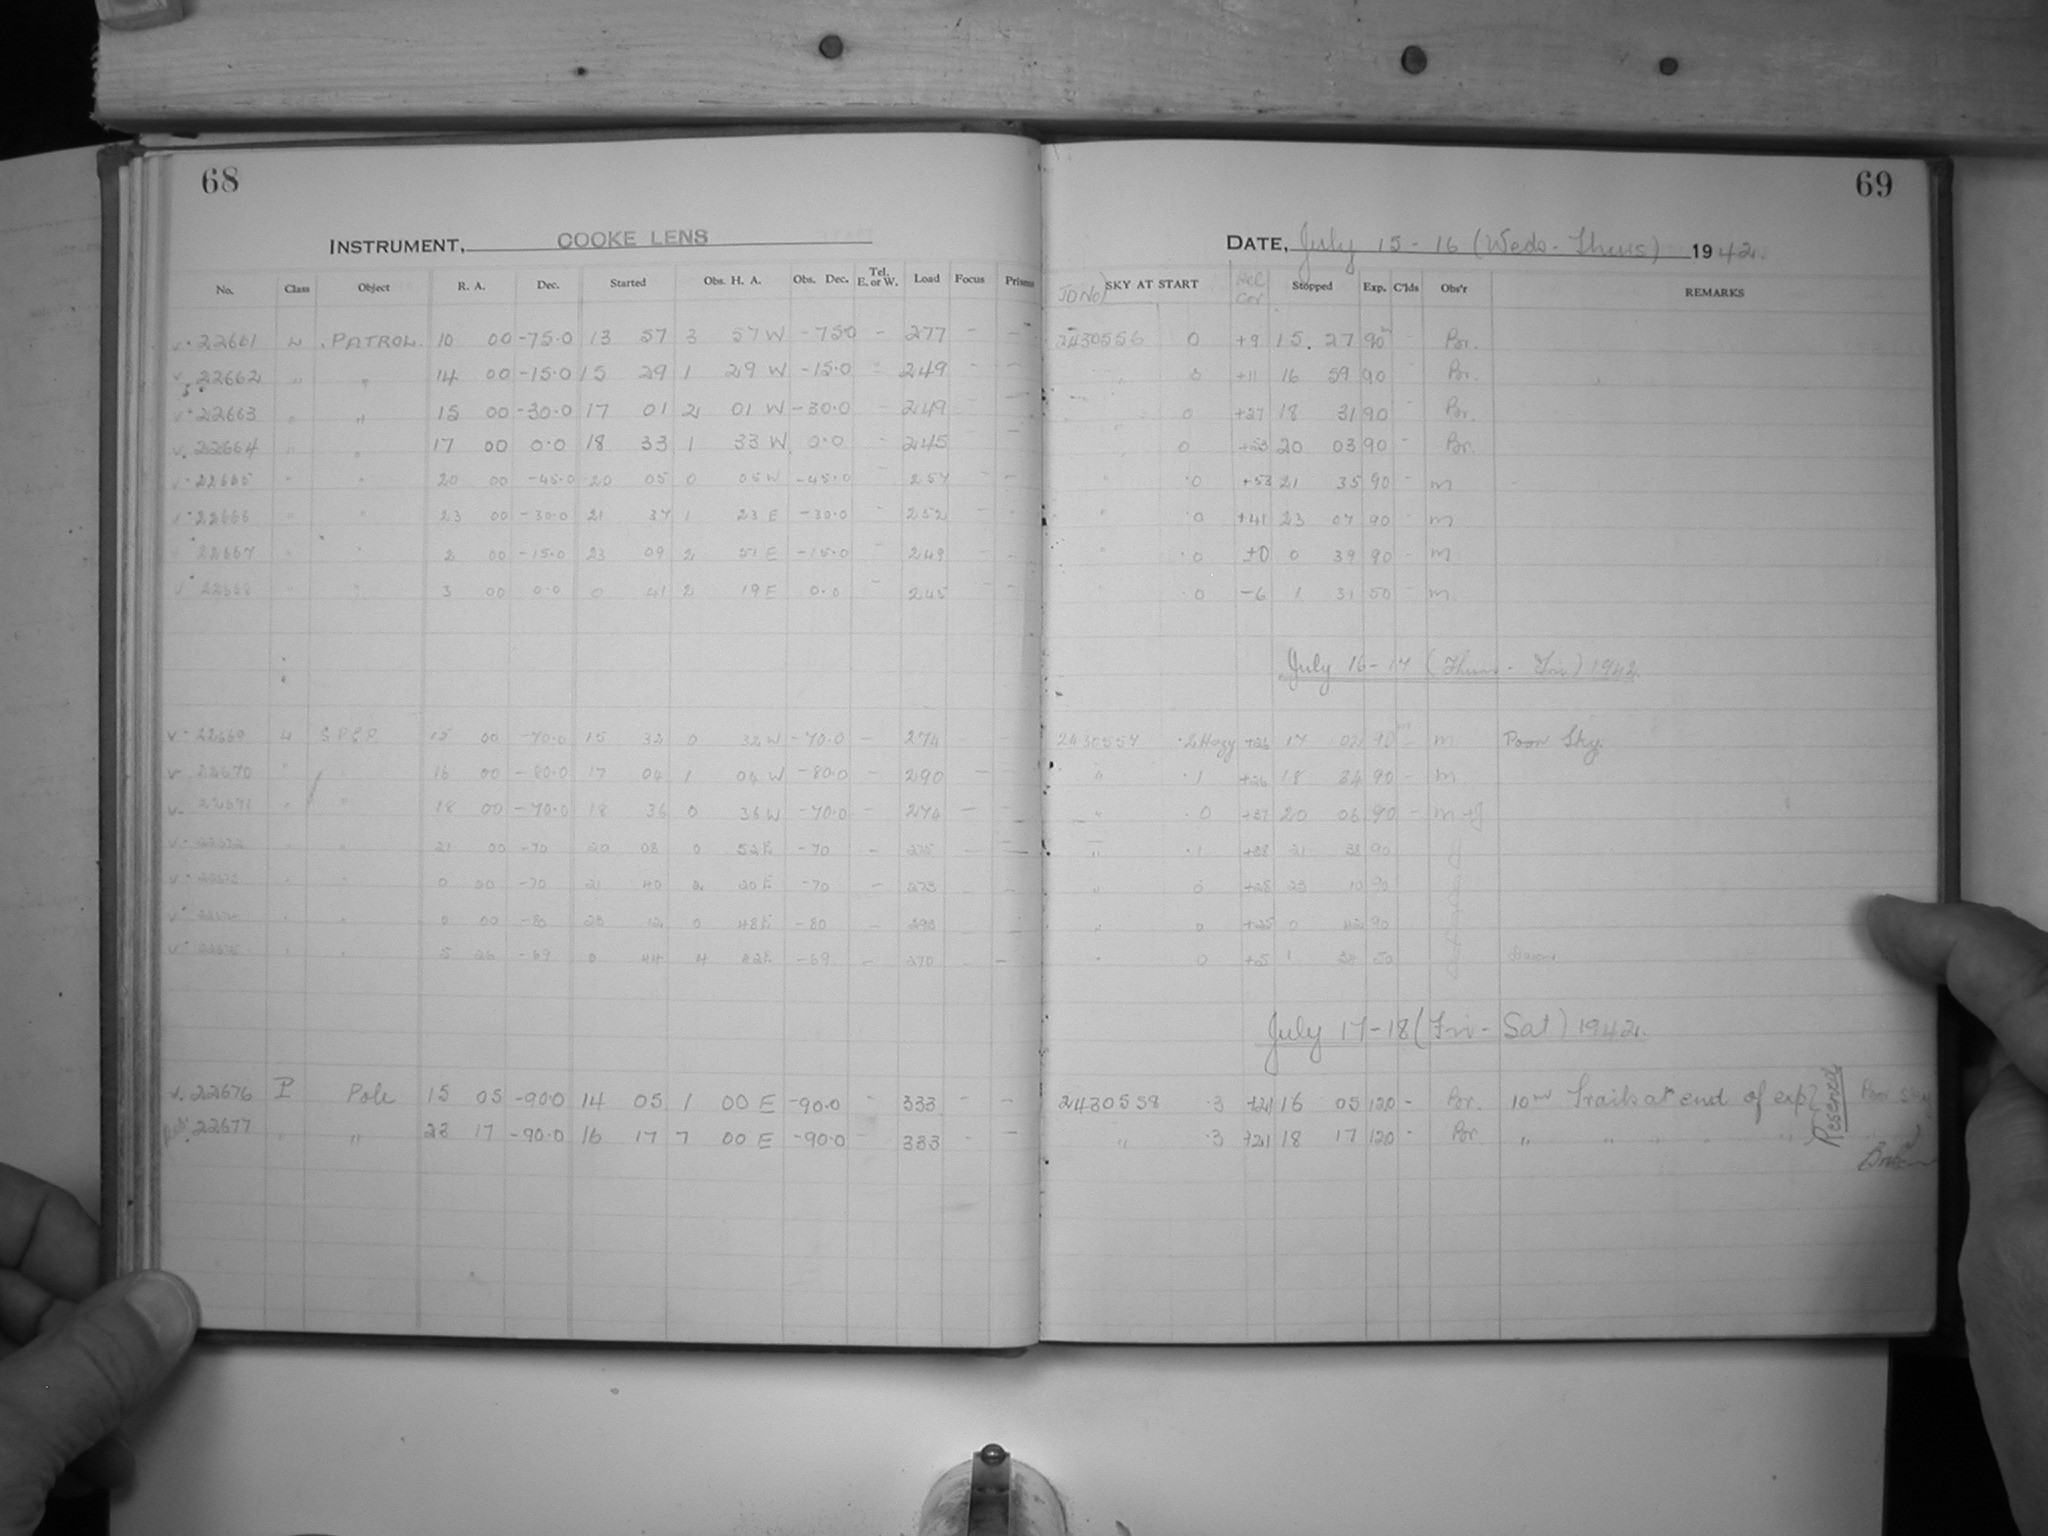 68
INSTRUMENT, COOKE LENS
No. Class Object R. A. Dec. Started Obs. H. A. Obs. Dec. Tel. E. or W. Load Focus Prisms
v 22661 PATROL 10 00 -75.0 13 57 3 57 W -75.0 - 277 - -
v 22662 " " 14 00 -15.0 15 29 1 29 W -15.0 249 - -
v 22663 " " 15 00 -30.0 17 01 2 01 W -30.0 - 249 - -
v. 22664 " " 17 00 0.0 18 33 1 33 W 0.0 - 245 - -
v 22665 " " 20 00 -45.0 20 05 0 05 W -45.0 - 257 - -
v 22666 " " 23 00 -30.0 21 37 1 23 E -30.0 - 252 - -
22667 " " 2 00 -15.0 23 09 2 51 E -15.0 - 249 - -
v 22668 " " 3 00 0.0 0 41 2 19 E 0.0 - 245 - -
v 22669 15 00 -70.0 15 32 0 32 W -70.0 - 274 - -
v 22670 " " 16 00 -80.0 17 04 1 04 W -80.0 - 290 - -
v 22671 " " 18 00 -70.0 18 36 0 36 W -70.0 - 274 - -
v 22672 " " 21 00 -70 20 08 0 52 E -70 - - -
v 22673 " " 0 00 -70 21 40 2 20 E -70 - 273 - -
v 22674 " " 0 00 -80 23 12 0 48 E -80 - - -
v 22675 " " 5 26 -69 0 44 4 42 E -69 - 270 - -
v. 22676 P Pole 15 05 -90.0 14 05 1 00 E -90.0 - 333 - -
22677 " " 23 17 -90.0 16 17 7 00 E -90.0 - 333 - -
69
DATE, July 15 - 16 (Weds - Thurs) 1942.
JD No) SKY AT START Hel Cor Stopped Exp. C'lds Obs'r REMARKS
2430556 0 +9 15. 27 90m - Por.
" 3 +11 16 59 90 - Por.
0 +27 18 31 90 - Por.
" 0 20 03 90 - Por.
" .0 +53 21 35 90 - m
" .0 +41 23 07 90 - m
.0 +0 0 39 90 - m
.0 -6 1 31 50 - m.
July 16-17 (Thurs - Fri) 1942.
2430557 .2 Hazy +26 17 02 90m - m Poor Sky.
" .1 +26 18 34 90 - m
" .0 +37 20 06 90 - m + J
" .1 +38 21 38 90 J
" 0 +28 23 10 90
" 0 +25 0 42 90
" 0 +5 1 34 50
July 17-18 (Fri - Sat) 1942.
2430558 .3 +21 16 05 120 - Por. 10m Trails at end of exp Reserved Poor sky
" .3 +21 18 17 120 - Por. " " " " " Broken